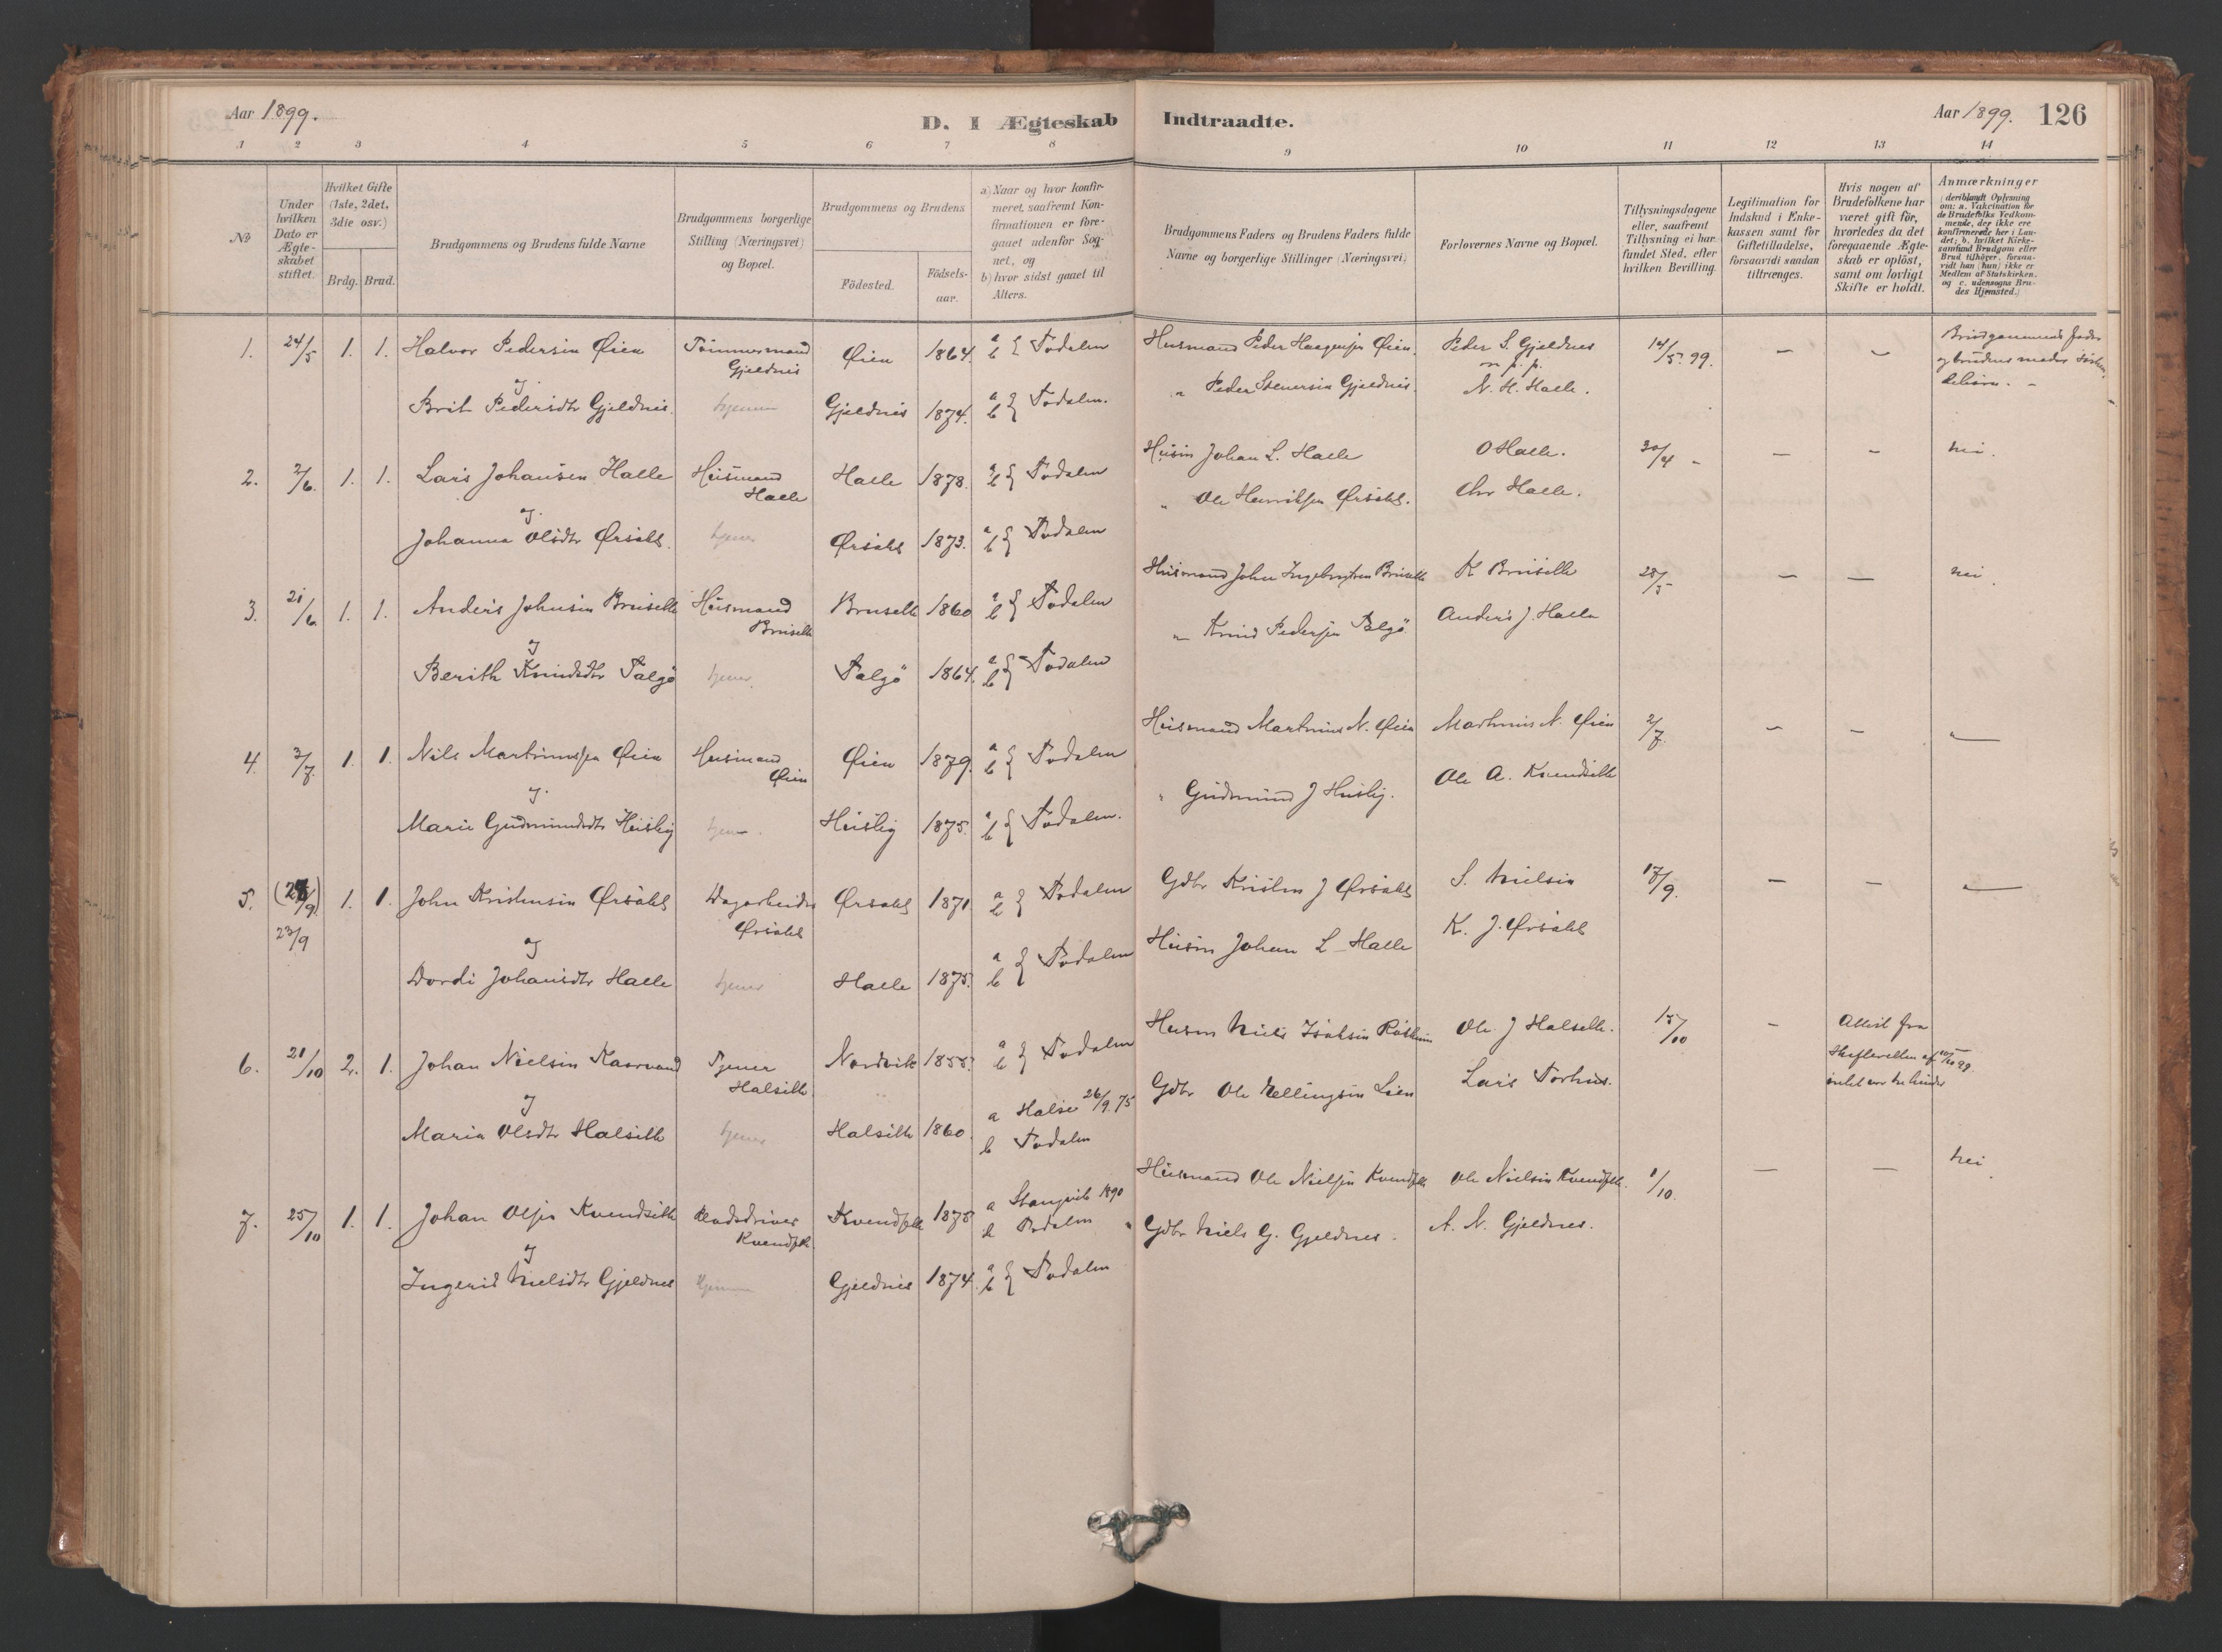 Aar 1899.
D. I Ægteskab Indtraadte.
Aar 1899. 126
1 2 3 4 5 6 7 8 9 10 11 12 13 14
No
Under hvilken Dato er Ægteskabet stiftet.
Hvilket Gifte (1ste, 2det, 3die osv.)
Brdg. Brud.
Brudgommens og Brudens fulde Navne
Brudgommens borgerlige Stilling (Næringsvei) og Bopæl.
Brudgommens og Brudens
Födested.
Födsels-aar.
a) Naar og hvor konfirmeret, saafremt Konfirmationen er foregaaet udenfor Sognet, og
b) hvor sidst gaaet til Alters.
Brudgommens Faders og Brudens Faders fulde Navne og borgerlige Stillinger (Næringsvei)
Forlovernes Navne og Bopæl.
Tillysningsdagene eller, saafremt Tillysning ei har fundet Sted, efter hvilken Bevilling.
Legitimation for Indskud i Enkekassen samt for Giftetilladelse, forsaavidt saadan tiltrænges.
Hvis nogen af Brudefolkene har været gift før, hvorledes da det foregaaende Ægteskab er oplöst, samt om lovligt Skifte er holdt.
Anmærkninger (deriblandt Oplysning om: a. Vakcination for de Brudefolks Vedkommende, der ikke ere konfirmerede her i Landet; b. hvilket Kirkesamfund Brudgom eller Brud tilhörer, forsaavidt han (hun) ikke er Medlem af Statskirken, og c. udensogns Brudes Hjemsted.)
1. 24/5 1. 1. Halvor Pedersen Øien Tömmermand Gjeldnes Øien 1864. a b } Todalen Husmand Peder Haagensen Øien. Peder S. Gjeldnes m. p. p. 14/5. 99. - - Brudgommens fader og brudens moder
og
Brit Pedersdtr Gjeldnes. Gjeldnes 1874. a b } Todalen. " Peder Steversen Gjeldnes. N. H. Halle.
2. 2/6. 1. 1. Lars Johansen Halle Husmand Halle Halle 1878. a b } Todalen Husm Johan L. Halle O Halle. 30/4 - - - nei.
og
Johanna Olsdtr Ørsahl. tjener Ørsahl 1873. a b } Todalen " Ole Henriksen Ørsahl. Chr Halle.
3. 21/6 1. 1. Anders Johnsen Bruselle Husmand Bruselle Bruselle 1860 a b } Todalen Husmand John Ingebrigtsen Bruselle K Bruselle 28/5 - - nei.
og
Berith Knudsdtr Talgö tjener. Talgö 1864. a b } Todalen " Knud Pedersen Talgö. Anders J. Halle
4. 3/7. 1. 1. Nils Martinussen Øien Husmand Øien Øien 1879. a b } Todalen Husmand Martinus N. Øien Martinus N. Øien 2/7. - - -
og
Marie Gudmundsdtr Husby Husby 1875. a b } Todalen. " Gudmund J Husby. Ole A. Kvendseth
5. 23/9 1. 1. John Kristensen Ørsahl Dagarbeider Ørsahl Ørsahl 1871 a b } Todalen Gdbr Kristen J Ørsahl S. Nielsen 17/9. - - -
og
Dordi Johansdtr Halle tjener Halle 1875. a b } Todalen Husm Johan L Halle K. J. Ørsahl
6. 21/10 2. 1. Johan Nielsen Tjener Halseth Nordvik 1855. a b } Todalen Husm Niels Isaksen Ole J Halseth. 15/10 - Attest fra Skifteretten af
og
Maria Olsdtr Halseth tjener Halseth 1860. a Halse 26/9. 75 b Todalen Gdbr Ole Lien Lars Torhus.
7. 25/10 1. 1. Johan Olsen Kvendseth Kvendseth Kvendseth 1875 a Stangvik 1890 b Todalen Husmand Ole Nielsen Kvendseth Ole Nielsen Kvendseth. 1/10. - - nei.
og
Ingerid Nielsdtr Gjeldnes Gjeldnes 1874. a b } Todalen Gdbr Niels G. Gjeldnes. A. N. Gjeldnes.